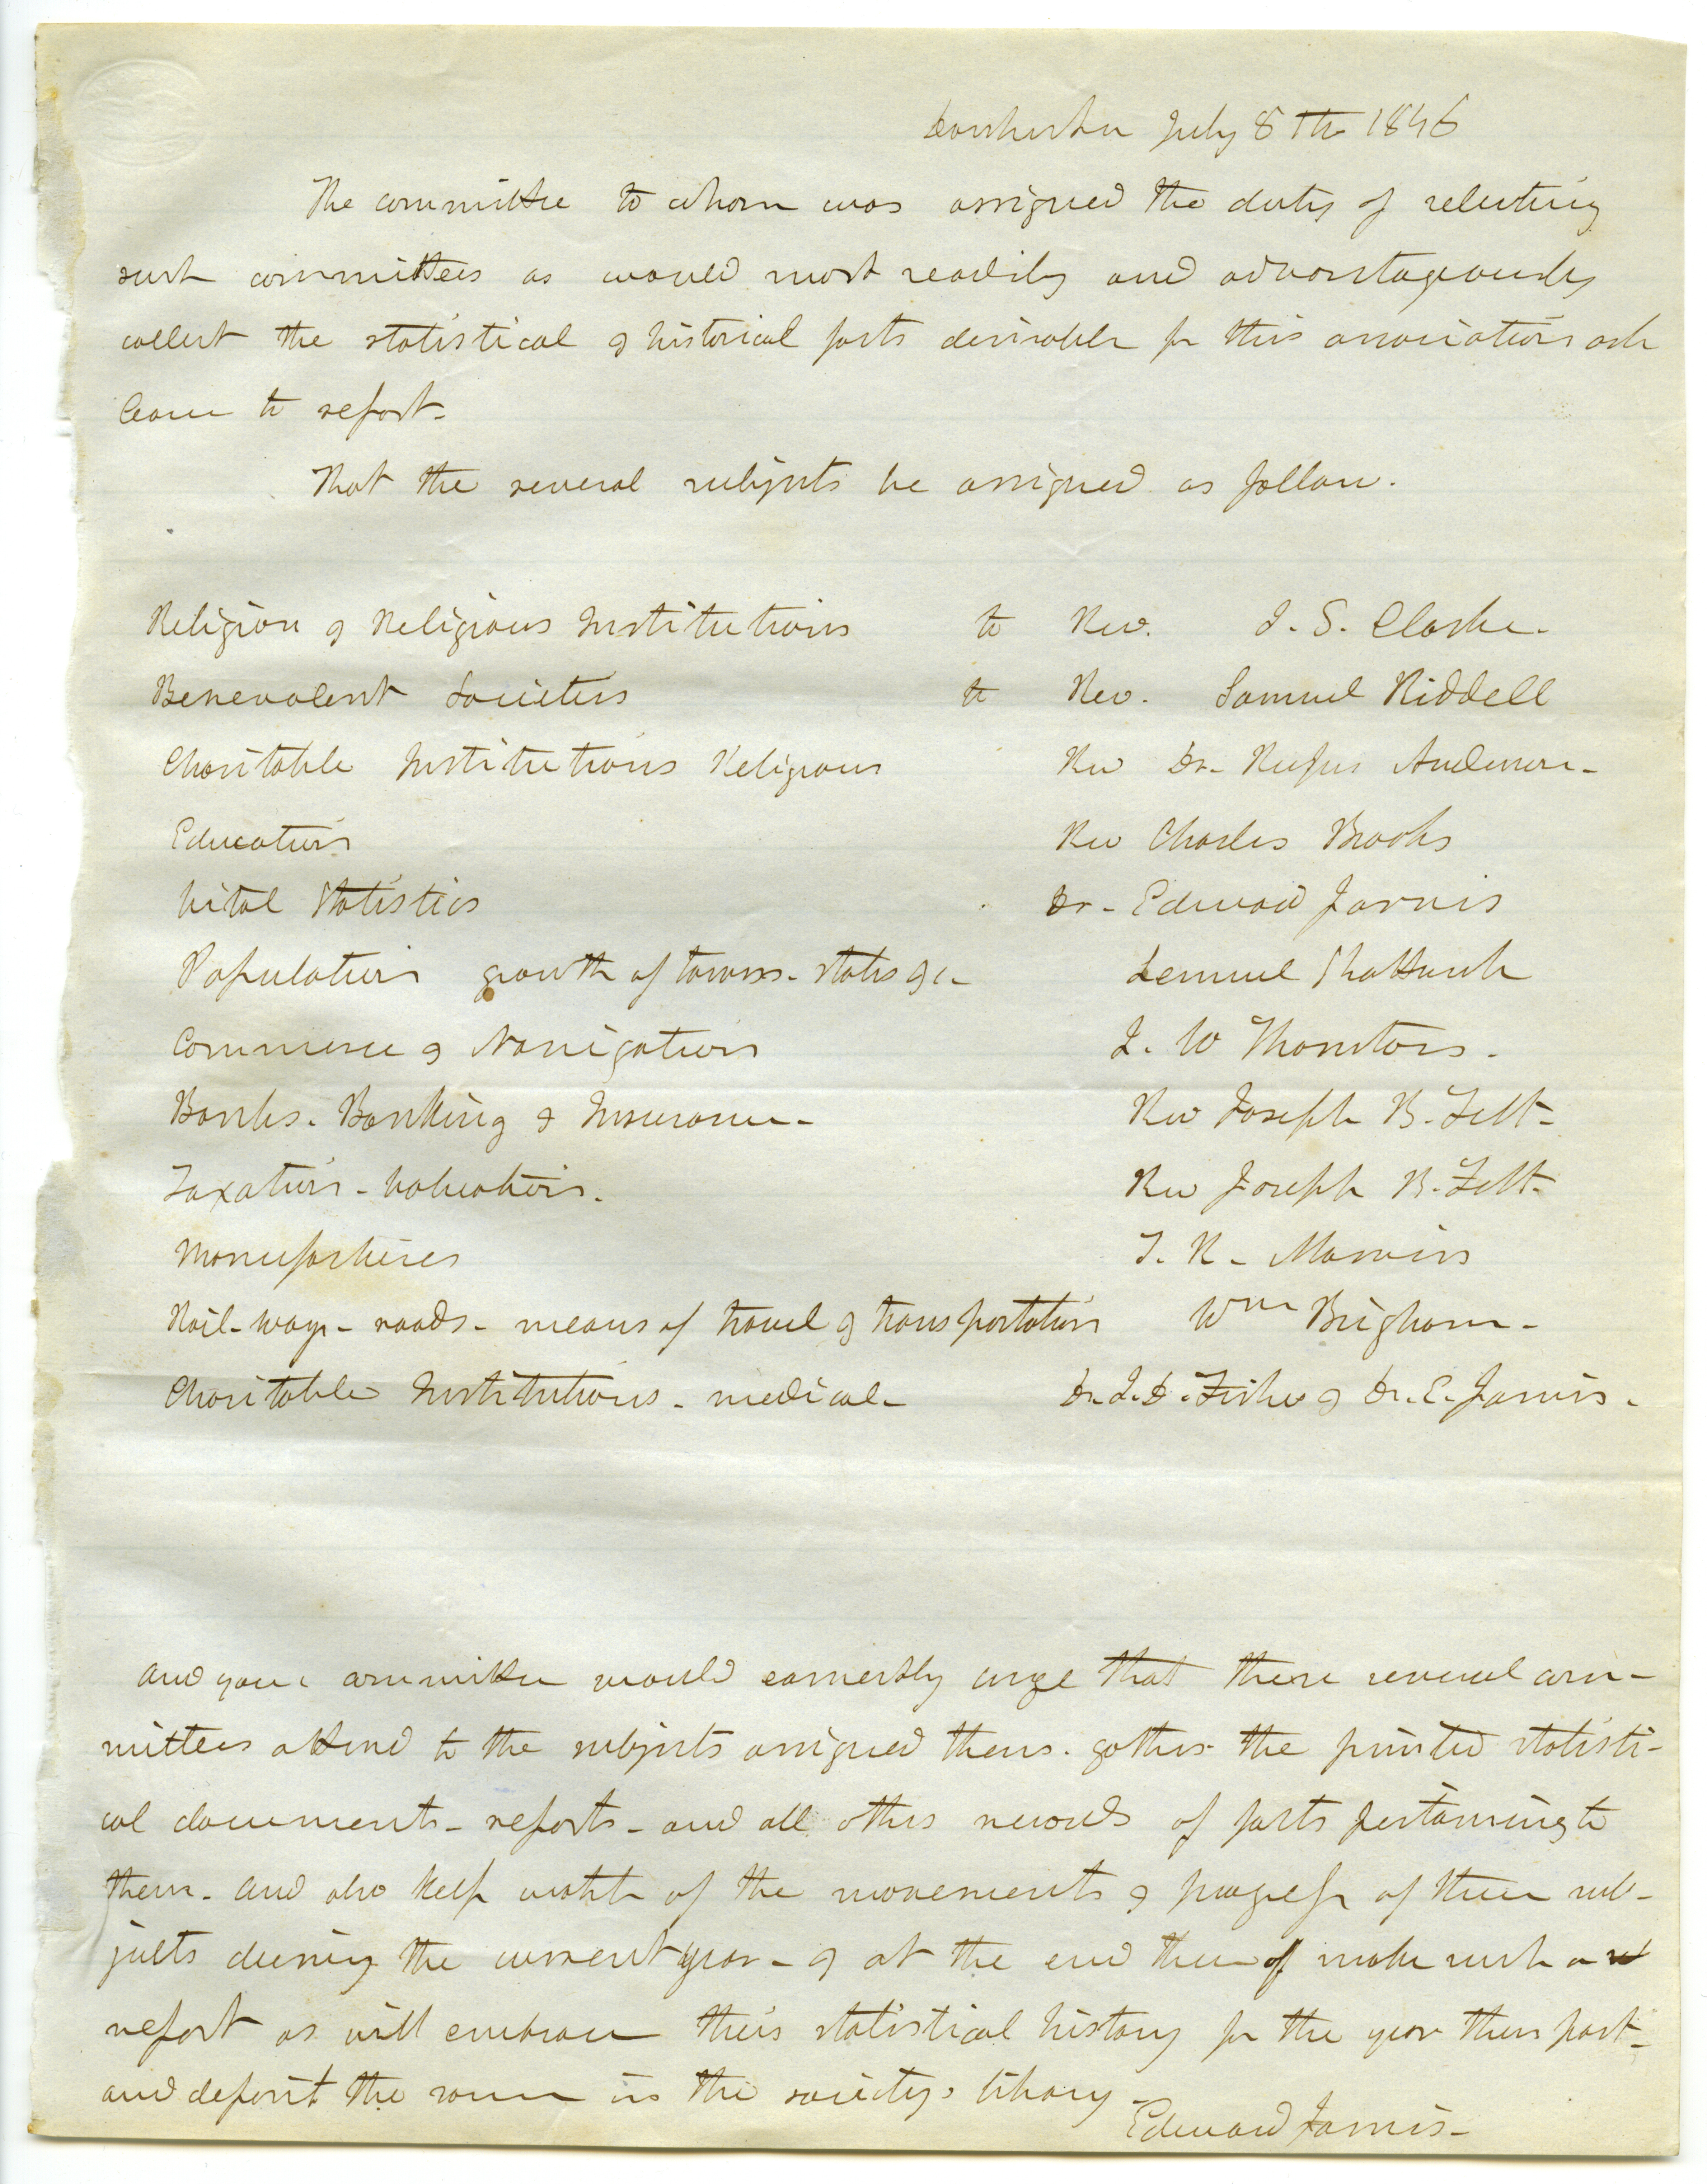 Dorchester July 8th 1846
The committee to whom was assigned the duty of selecting
such committees as would most readily and advantageously
collect the statistical & historical facts desirable for this association ask
leave to report.
That the several subjects be assigned as follow.
Religion & Religious Institutions to Rev. J. S. Clarke.
Benevolent Societies to Rev. Samuel Riddell
Charitable Institutions Religious Rev Dr. Rufus Anderson-
Education Rev Charles Brooks
Vital Statistics Dr- Edward Jarvis
Population growth of towns- states &c- Lemuel Shattuck
Commerce & Navigation J. W Thornton.
Banks. Banking & Insurance- Rev Joseph B. Felt-
Taxation- Valuation. Rev Joseph B. Felt-
Manufactures T. R- Marvin
Rail-ways- roads- means of travel & transportation Wm Brigham-
Charitable Institutions- medical- Dr. J. D. Fisher & Dr. E. Jarvis.
And your committee would earnestly urge that these several com-
mittees attend to the subjects assigned them. gather the printed statisti-
cal documents- reports- and all other records of facts pertaining to
them- and also keep watch of the movements & progress of their sub-
jects during the current year- & at the end thereof make such a
report as will embrace their statistical history for the year then past-
and deposit the same in the society's library-
Edward Jarvis-